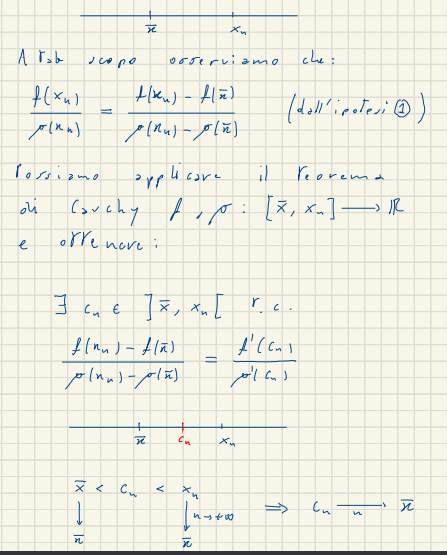 x̄ xₙ
A tale scopo osserviamo che:
f(xₙ) / g(xₙ) = (f(xₙ) - f(x̄)) / (g(xₙ) - g(x̄)) (dall'ipotesi ①)
Possiamo applicare il teorema
di Cauchy f, g : [x̄, xₙ] → ℝ
e ottenere:
∃ cₙ ∈ ]x̄, xₙ[ t.c.
(f(xₙ) - f(x̄)) / (g(xₙ) - g(x̄)) = f'(cₙ) / g'(cₙ)
x̄ cₙ xₙ
x̄ < cₙ < xₙ
↓ ↓ n→+∞ ⟹ cₙ →ₙ x̄
x̄ x̄